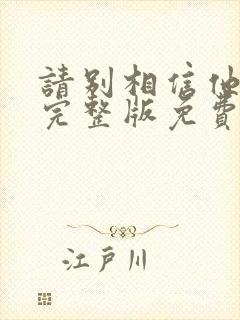 請別相信他
完整版免費
江戶川